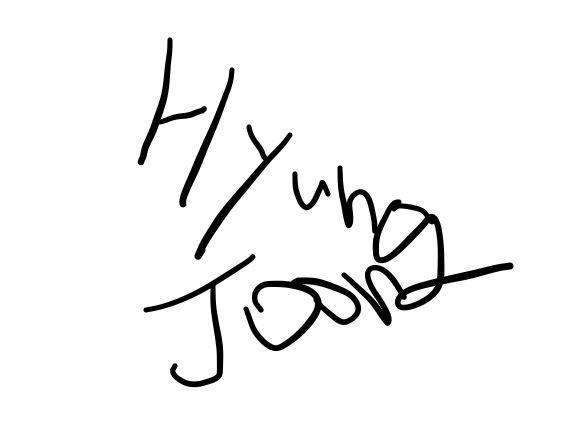 Hyung
Joon